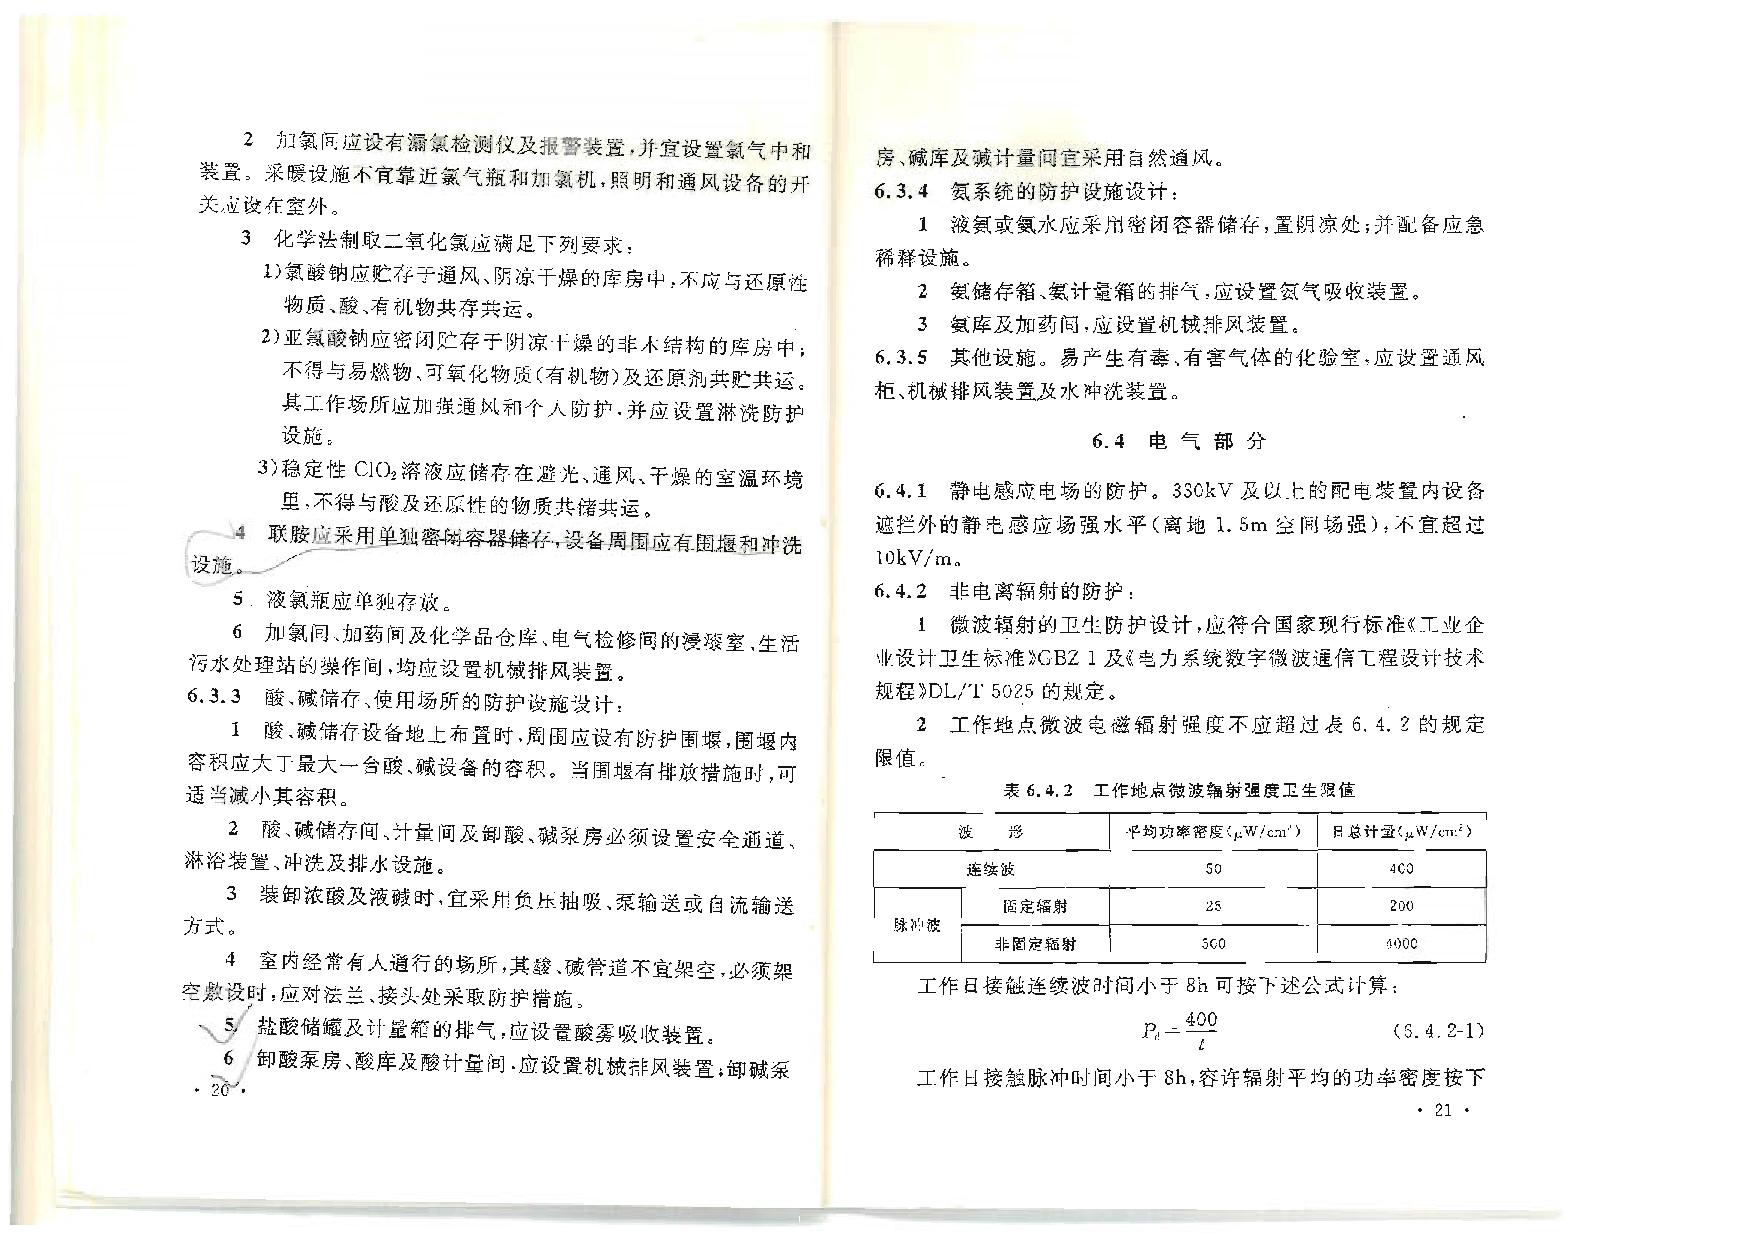 2 加氯间应设有漏氯检测仪及报警装置,并宜设置氯气中和
装置。采暖设施不宜靠近氯气瓶和加氯机,照明和通风设备的开
关应设在室外。
3 化学法制取二氧化氯应满足下列要求:
1)氯酸钠应贮存于通风、阴凉干燥的库房中,不应与还原性
物质、酸、有机物共存共运。
2)亚氯酸钠应密闭贮存于阴凉干燥的非木结构的库房中;
不得与易燃物、可氧化物质(有机物)及还原剂共贮共运。
其工作场所应加强通风和个人防护,并应设置淋洗防护
设施。
3)稳定性 ClO₂溶液应储存在避光、通风、干燥的室温环境
里,不得与酸及还原性的物质共储共运。
4 联胺应采用单独密闭容器储存,设备周围应有围堰和冲洗
设施。
5 液氯瓶应单独存放。
6 加氯间、加药间及化学品仓库、电气检修间的浸漆室、生活
污水处理站的操作间,均应设置机械排风装置。
6.3.3 酸、碱储存、使用场所的防护设施设计:
1 酸、碱储存设备地上布置时,周围应设有防护围堰,围堰内
容积应大于最大一台酸、碱设备的容积。当围堰有排放措施时,可
适当减小其容积。
2 酸、碱储存间、计量间及卸酸、碱泵房必须设置安全通道、
淋浴装置、冲洗及排水设施。
3 装卸浓酸及液碱时,宜采用负压抽吸、泵输送或自流输送
方式。
4 室内经常有人通行的场所,其酸、碱管道不宜架空,必须架
空敷设时,应对法兰、接头处采取防护措施。
5 盐酸储罐及计量箱的排气,应设置酸雾吸收装置。
6 卸酸泵房、酸库及酸计量间,应设置机械排风装置;卸碱泵
· 20 ·
房、碱库及碱计量间宜采用自然通风。
6.3.4 氨系统的防护设施设计:
1 液氨或氨水应采用密闭容器储存,置阴凉处;并配备应急
稀释设施。
2 氨储存箱、氨计量箱的排气,应设置氨气吸收装置。
3 氨库及加药间,应设置机械排风装置。
6.3.5 其他设施。易产生有毒、有害气体的化验室,应设置通风
柜、机械排风装置及水冲洗装置。
6.4 电气部分
6.4.1 静电感应电场的防护。330kV 及以上的配电装置内设备
遮拦外的静电感应场强水平(离地 1.5m 空间场强),不宜超过
10kV/m。
6.4.2 非电离辐射的防护:
1 微波辐射的卫生防护设计,应符合国家现行标准《工业企
业设计卫生标准》GBZ 1 及《电力系统数字微波通信工程设计技术
规程》DL/T 5025 的规定。
2 工作地点微波电磁辐射强度不应超过表 6.4.2 的规定
限值。
表 6.4.2 工作地点微波辐射强度卫生限值
波 形 平均功率密度(μW/cm²) 日总计量(μW/cm²)
连续波 50 400
脉冲波 固定辐射 25 200
非固定辐射 500 4000
工作日接触连续波时间小于 8h 可按下述公式计算:
P_d = 400/t (6.4.2-1)
工作日接触脉冲时间小于 8h,容许辐射平均的功率密度按下
· 21 ·